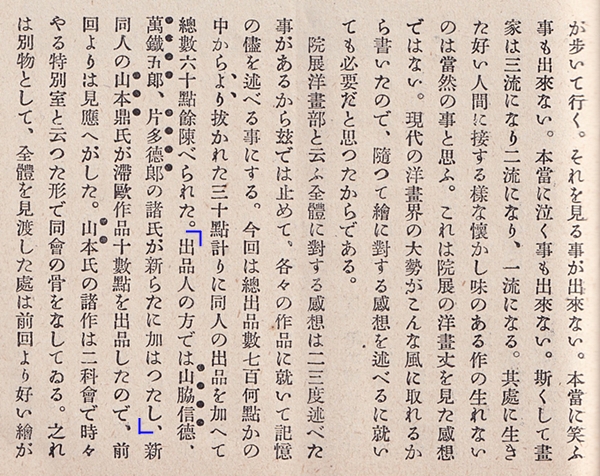 が步いて行く。それを見る事が出來ない。本當に笑ふ
事も出來ない。本當に泣く事も出來ない。斯くして畫
家は三流になり二流になり、一流になる。其處に生き
た好い人間に接する樣な懷かし味のある作の生れない
のは當然の事と思ふ。これは院展の洋畫丈を見た感想
ではない。現代の洋畫界の大勢がこんな風に取れるか
ら書いたので、隨つて繪に對する感想を述べるに就い
ても必要だと思つたからである。
院展洋畫部と云ふ全體に對する感想は二三度述べた
事があるから玆では止めて。各々の作品に就いて記憶
の儘を述べる事にする。今回は總出品數七百何點かの
中から、より拔かれた三十點計りに同人の出品を加へて
總數六十點餘陳べられた。出品人の方では山脇信德、
萬鐵五郎、片多德郎の諸氏が新らたに加はつたし、新
同人の山本鼎氏が滯歐作品十數點を出品したので、前
回よりは見應へがした。山本氏の諸作は二科會で時々
やる特別室と云つた形で同會の骨をなしてゐる。之れ
は別物として、全體を見渡した處は前回より好い繪が